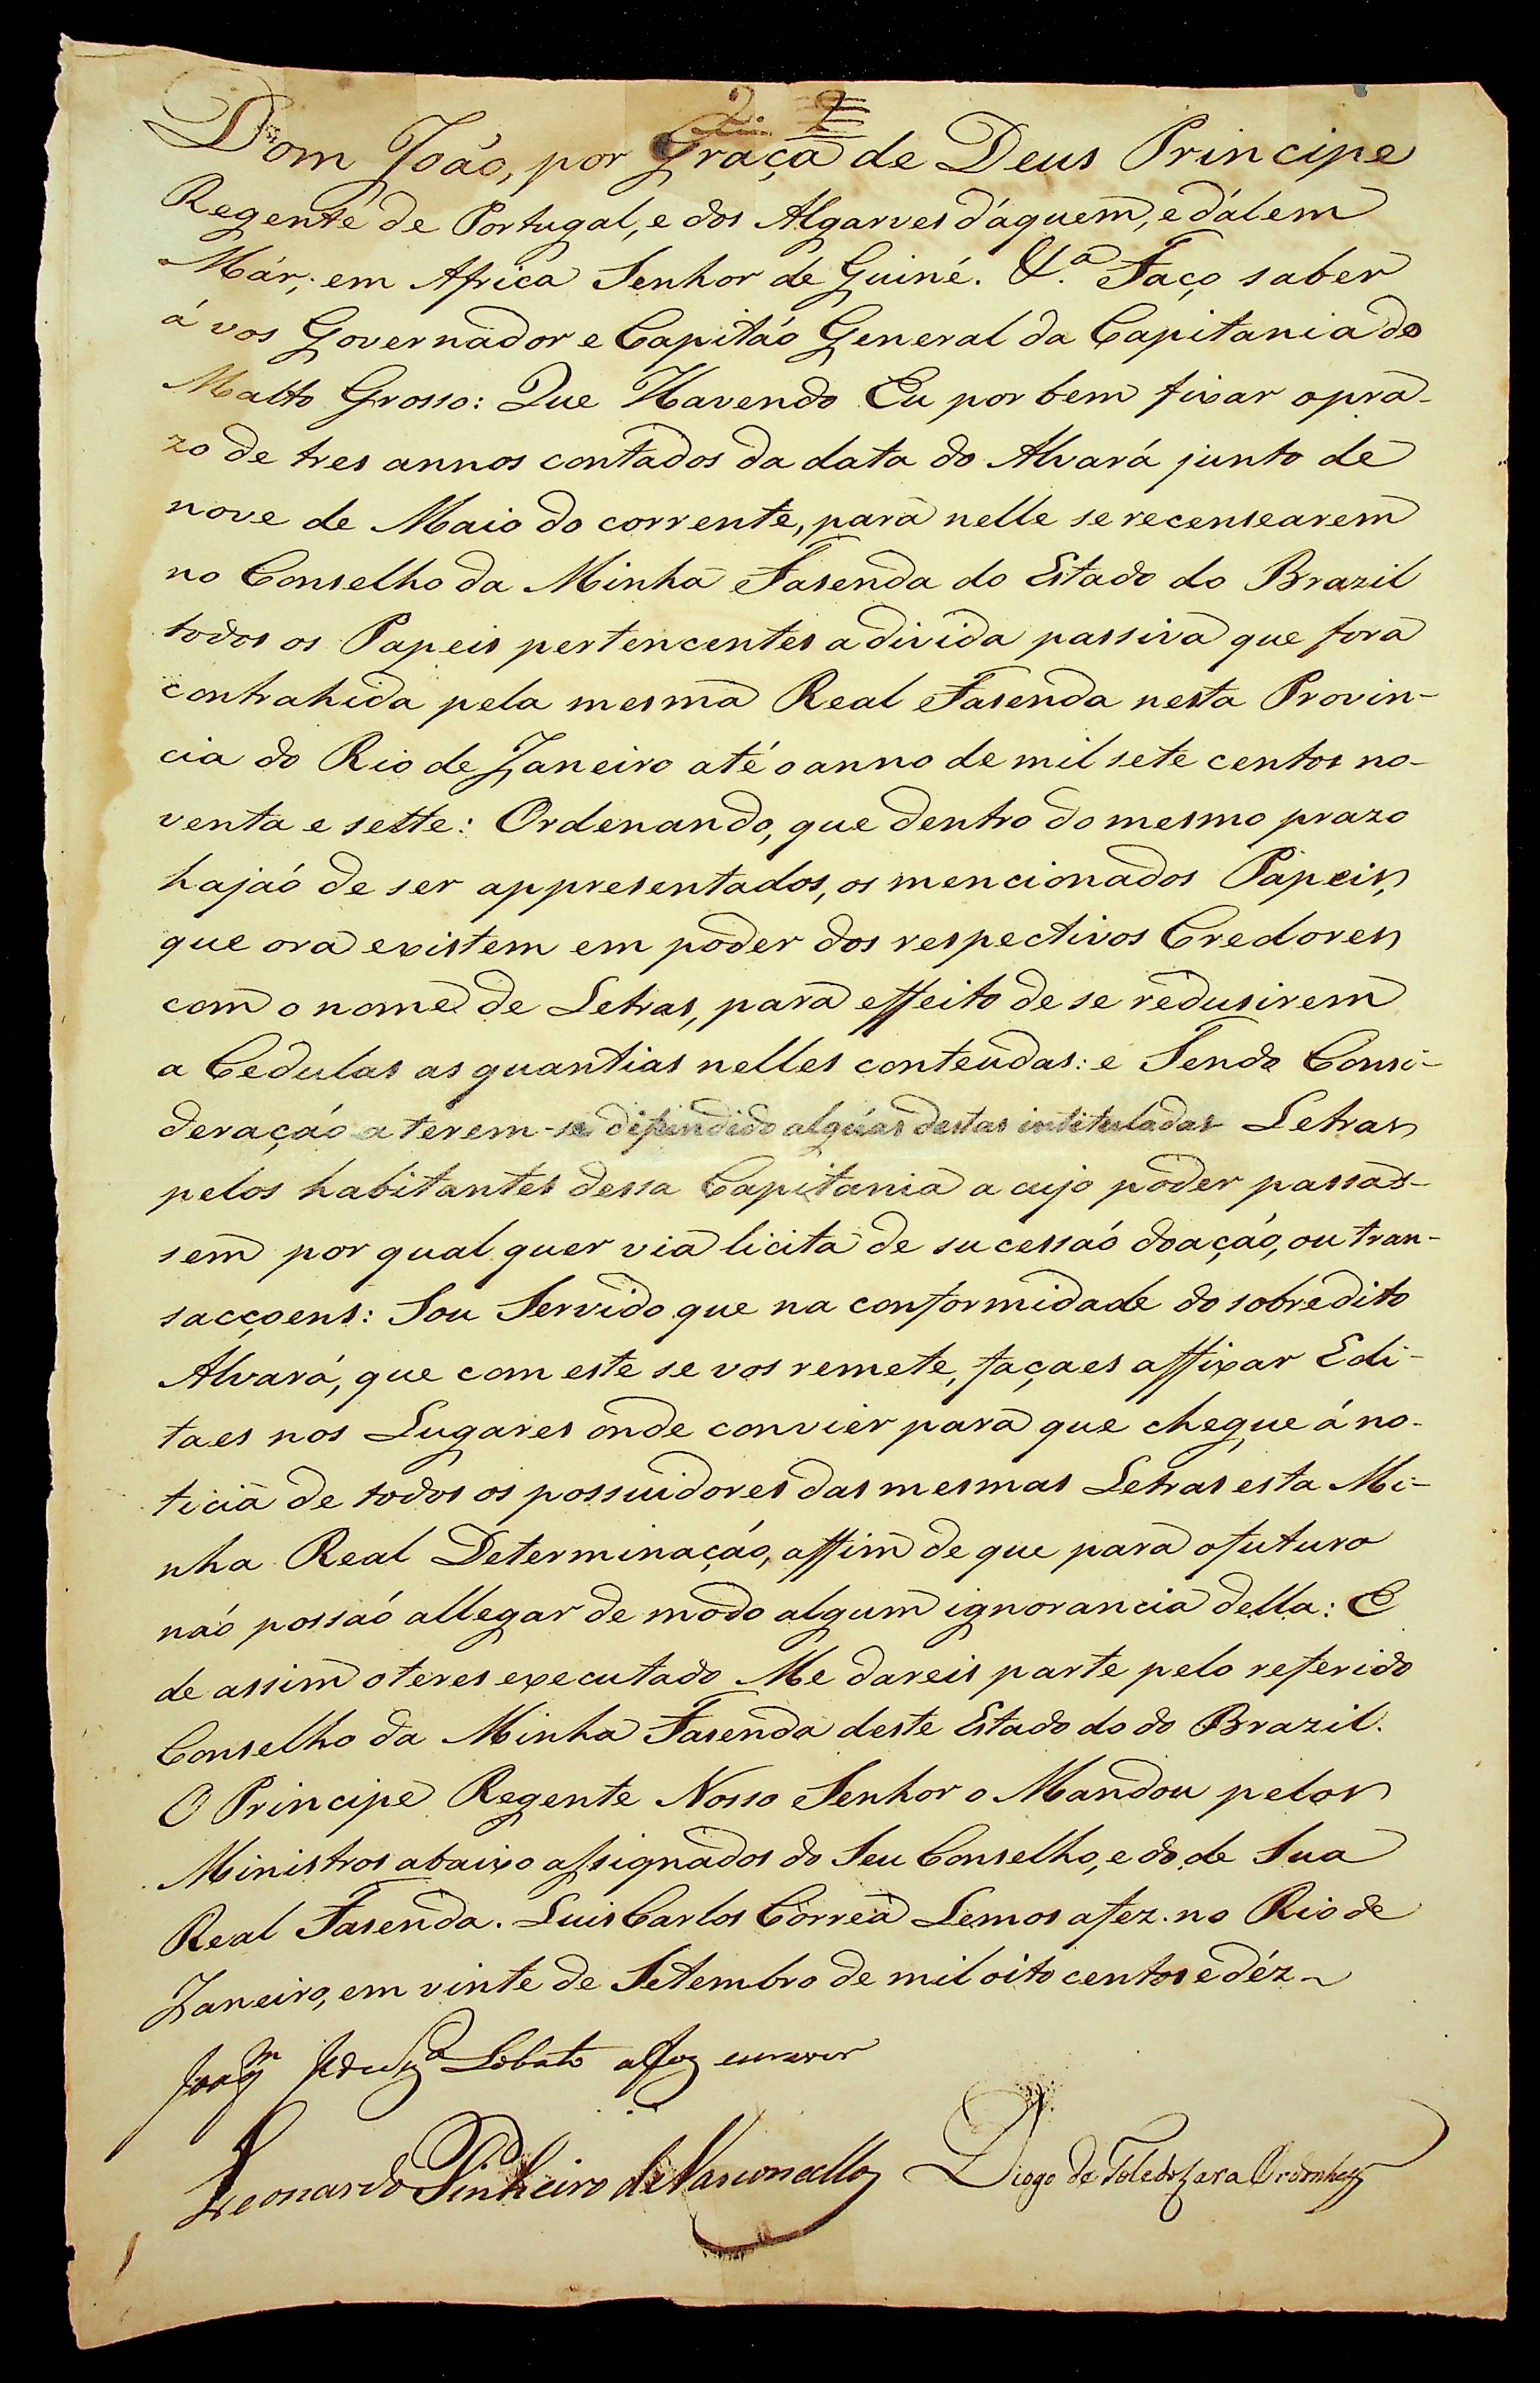 2 2
Dom João, por Graça de Deus Principe
Regente de Portugal, e dos Algarves d'aquem, e d'álem
Már, em Africa Senhor de Guiné. &.ª Faço saber
á vos Governador e Capitáo General da Capitania do
Matto Grosso: Que Havendo Eu por bem fixar o pra-
zo de tres annos contados da data do Alvará junto de
nove de Maio do corrente, para nelle se recensearem
no Conselho da Minha Fasenda do Estado do Brazil
todos os Papeis pertencentes a divida passiva que fora
contrahida pela mesma Real Fasenda nesta Provin-
cia do Rio de Janeiro até o anno de mil sete centos no-
venta e sette: Ordenando, que dentro do mesmo prazo
hajaó de ser appresentados, os mencionados Papeis,
que ora existem em poder dos respectivos Credores
com o nome de Letras, para effeito de se redusirem
a Cedulas as quantias nelles conteudas: e Tendo Consi-
deraçáo a terem-se difundido algúas destas intituladas Letras
pelos habitantes dessa Capitania a cujo poder passas-
sem por qual quer via licita de sucessaó doaçáo, ou tran-
sacçoens: Sou Servido que na conformidade do sobredito
Alvará, que com este se vos remete, façaes affixar Edi-
taes nos Lugares onde convier para que chegue á no-
ticia de todos os possuidores das mesmas Letras esta Mi-
nha Real Determinaçáo, affim de que para o futuro
náo possaó allegar de modo algum ignorancia della: E
de assim o teres executado Me dareis parte pelo referido
Conselho da Minha Fasenda deste Estado do do Brazil.
O Principe Regente Nosso Senhor o Mandou pelos
Ministros abaixo assignados do Seu Conselho, e do de Sua
Real Fasenda. Luis Carlos Corrêa Lemos a fez no Rio de
Janeiro, em vinte de Setembro de mil oito centos e déz
Lobato a fez escrever
Leonardo Pinheiro de Vasconcellos Diogo de Toledo Lara Ordonhez